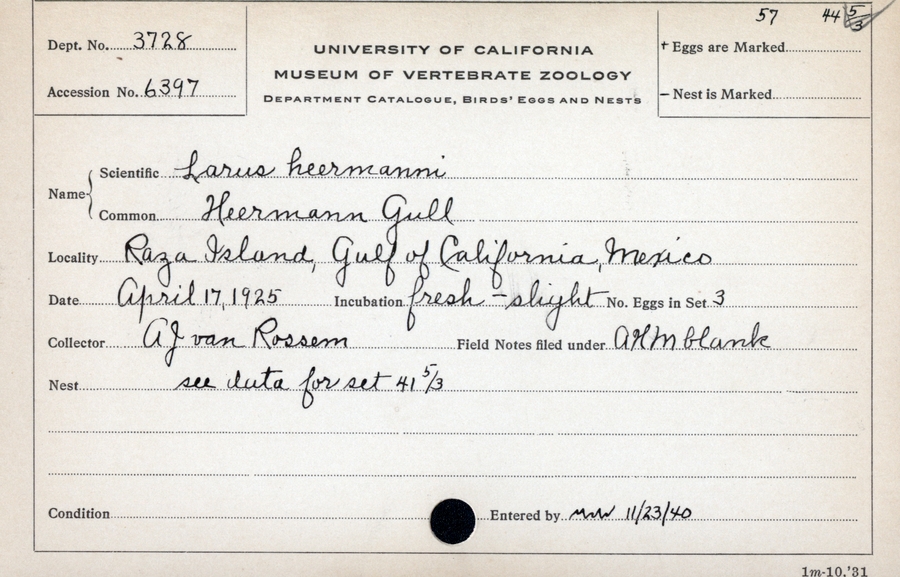 57 44 5/3
Dept. No. 3728
Accession No. 6397
UNIVERSITY OF CALIFORNIA
MUSEUM OF VERTEBRATE ZOOLOGY
DEPARTMENT CATALOGUE, BIRDS' EGGS AND NESTS
+ Eggs are Marked
– Nest is Marked
Name
Scientific Larus heermanni
Common Heermann Gull
Locality Raza Island, Gulf of California, Mexico
Date April 17, 1925 Incubation fresh – slight No. Eggs in Set 3
Collector AJ van Rossem Field Notes filed under blank
Nest see data for set 41 5/3
Condition Entered by 11/23/40
1m-10,'31